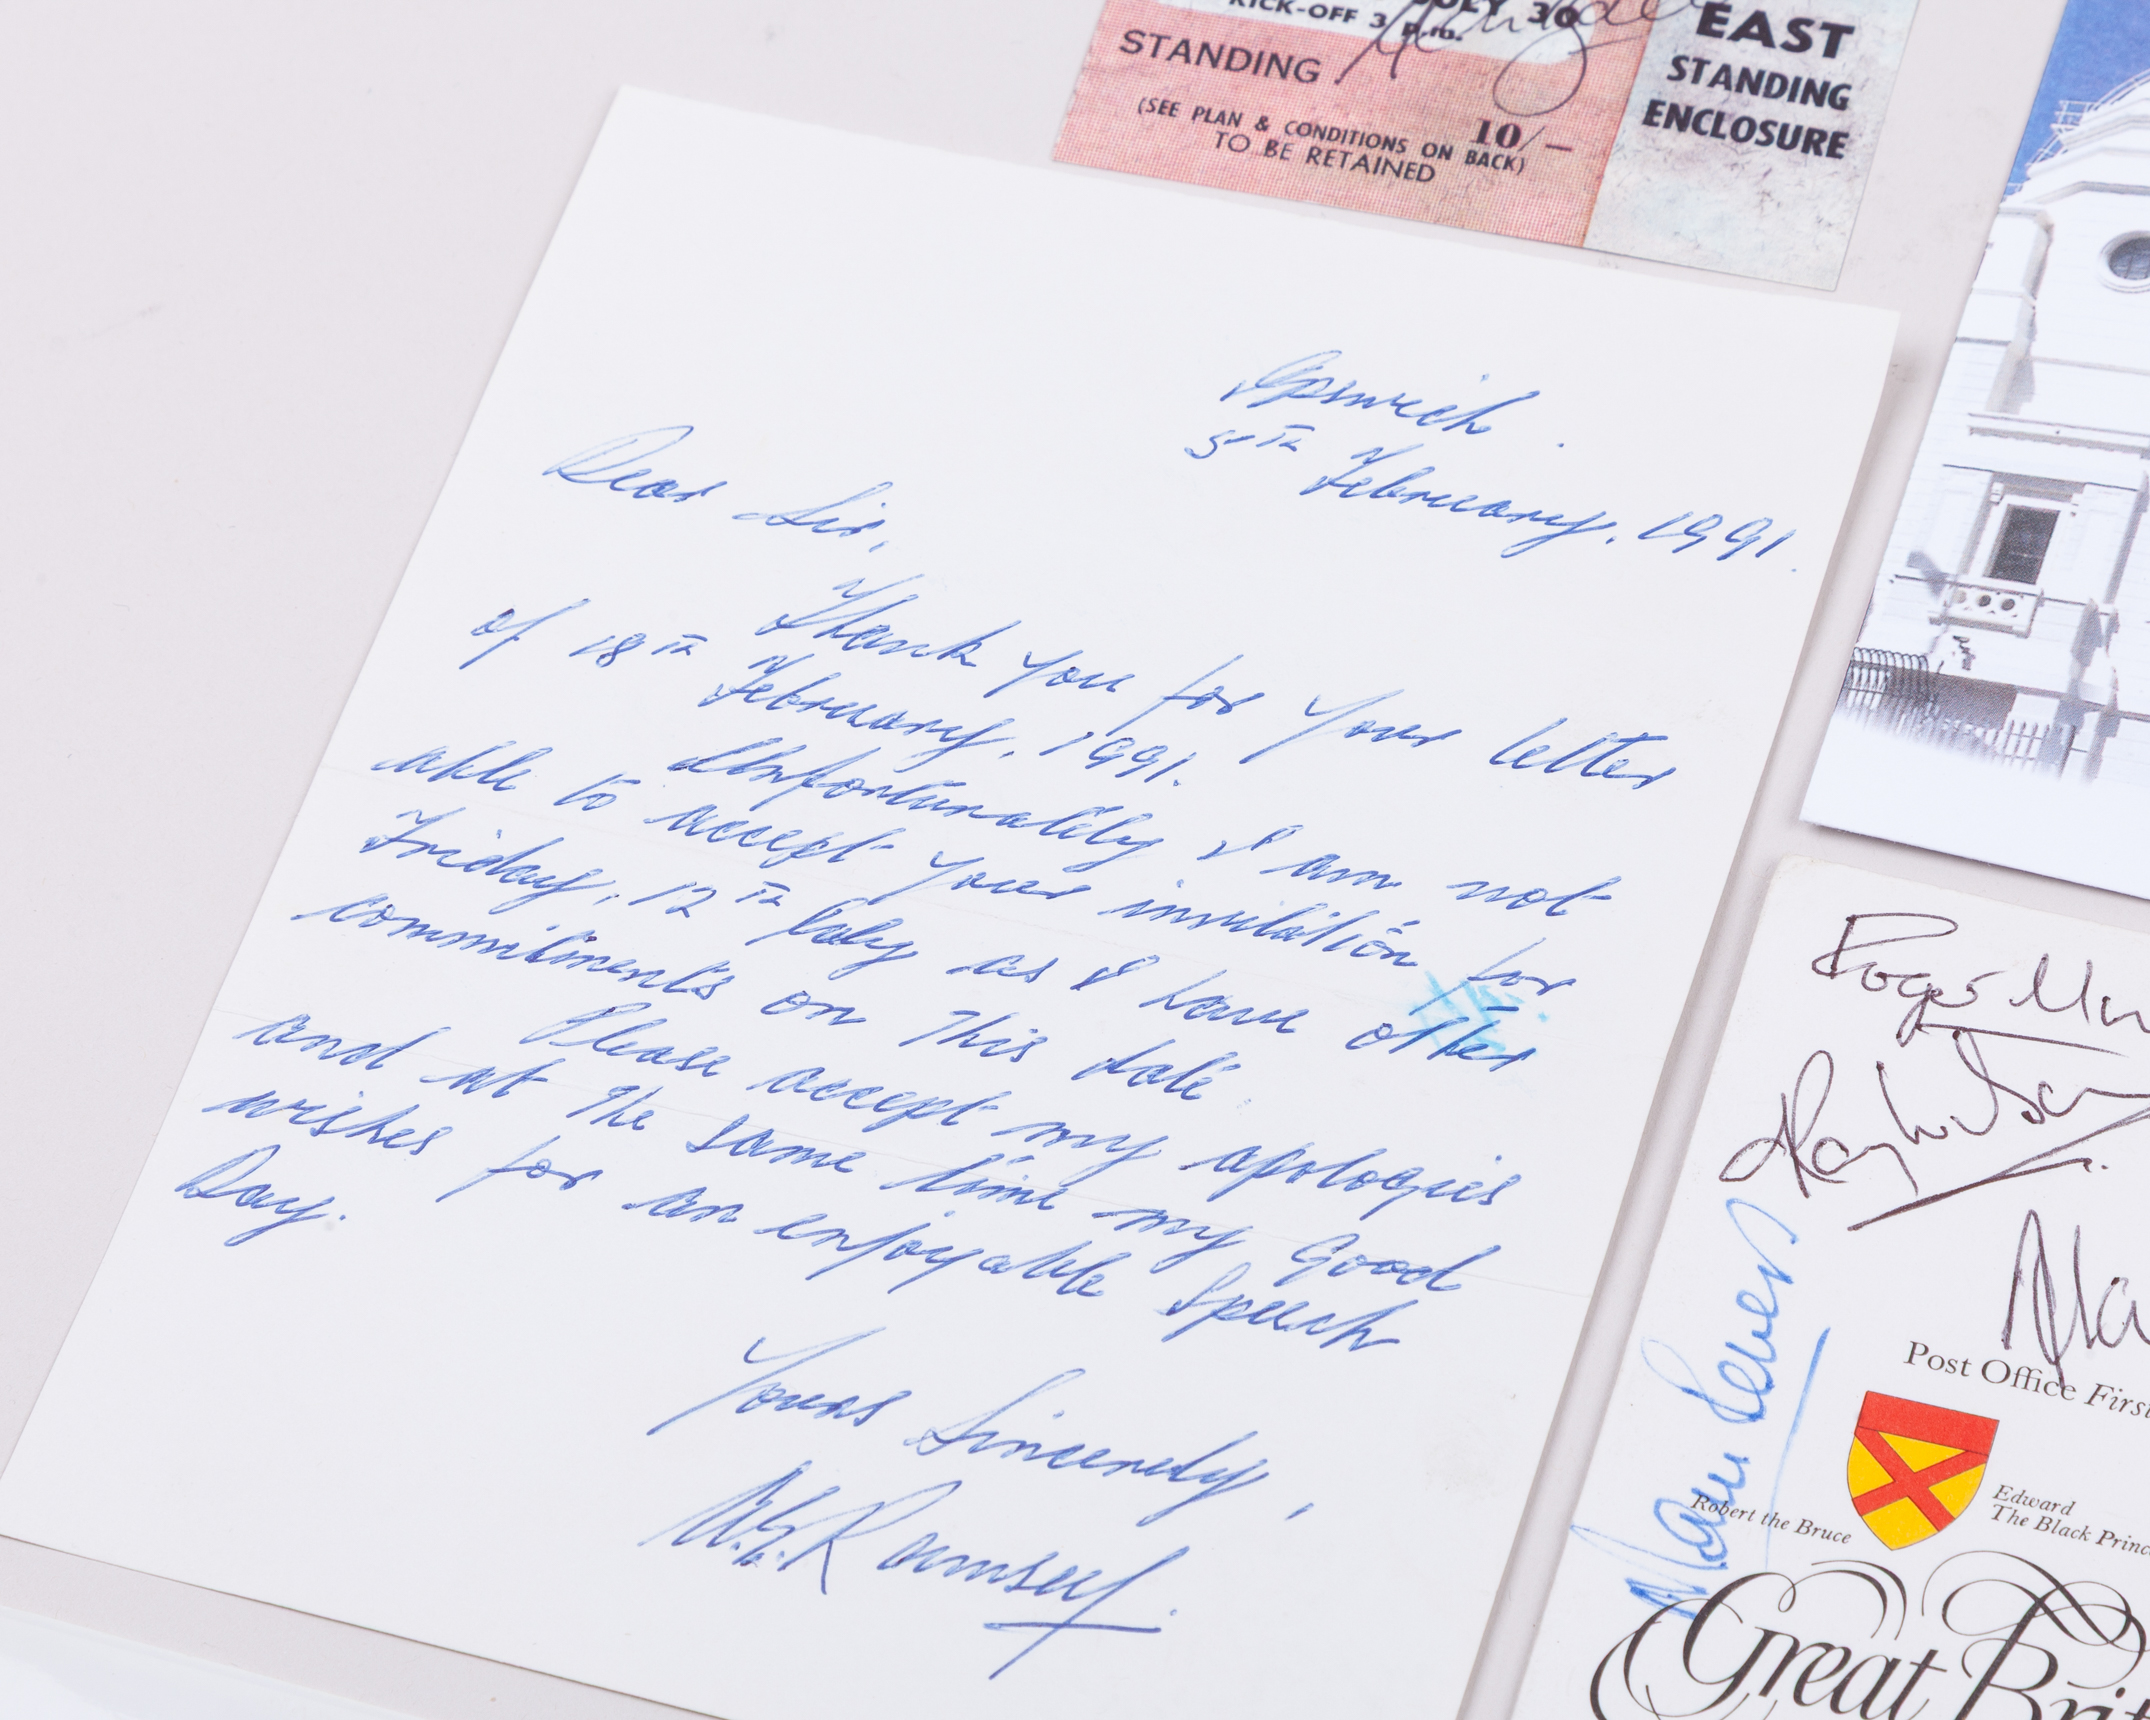 JULY 30
KICK-OFF 3 p.m.
STANDING
10/-
(SEE PLAN & CONDITIONS ON BACK)
TO BE RETAINED
EAST
STANDING
ENCLOSURE
Ipswich.
5th February, 1991.
Dear Sir,
Thank you for your letter
of 18th February, 1991.
Unfortunately I am not
able to accept your invitation for
Friday, 12th July as I have other
commitments on this date.
Please accept my apologies
and at the same time my good
wishes for an enjoyable Speech
Day.
Yours Sincerely,
A.E. Ramsey.
Roger
Ray Wilson
Post Office First
Robert the Bruce
Edward
The Black Princ
Great Brit